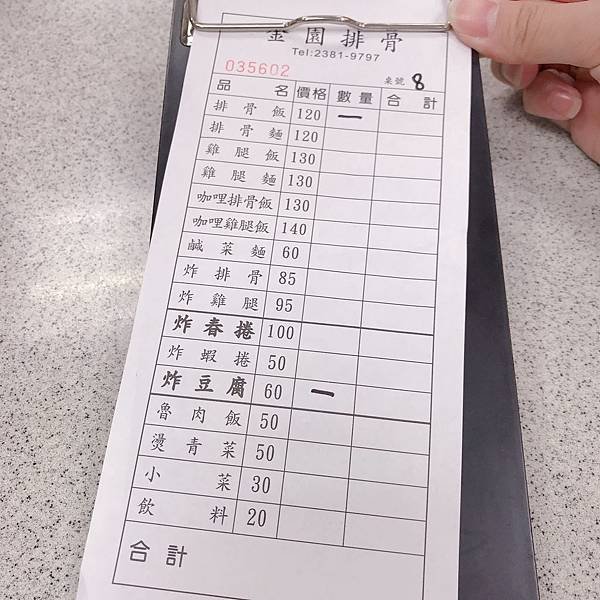 金園排骨
Tel:2381-9797
035602 桌號 8
品名 價格 數量 合計
排骨飯 120 一
排骨麵 120
雞腿飯 130
雞腿麵 130
咖哩排骨飯 130
咖哩雞腿飯 140
鹹菜麵 60
炸排骨 85
炸雞腿 95
炸春捲 100
炸蝦捲 50
炸豆腐 60 一
魯肉飯 50
燙青菜 50
小菜 30
飲料 20
合計